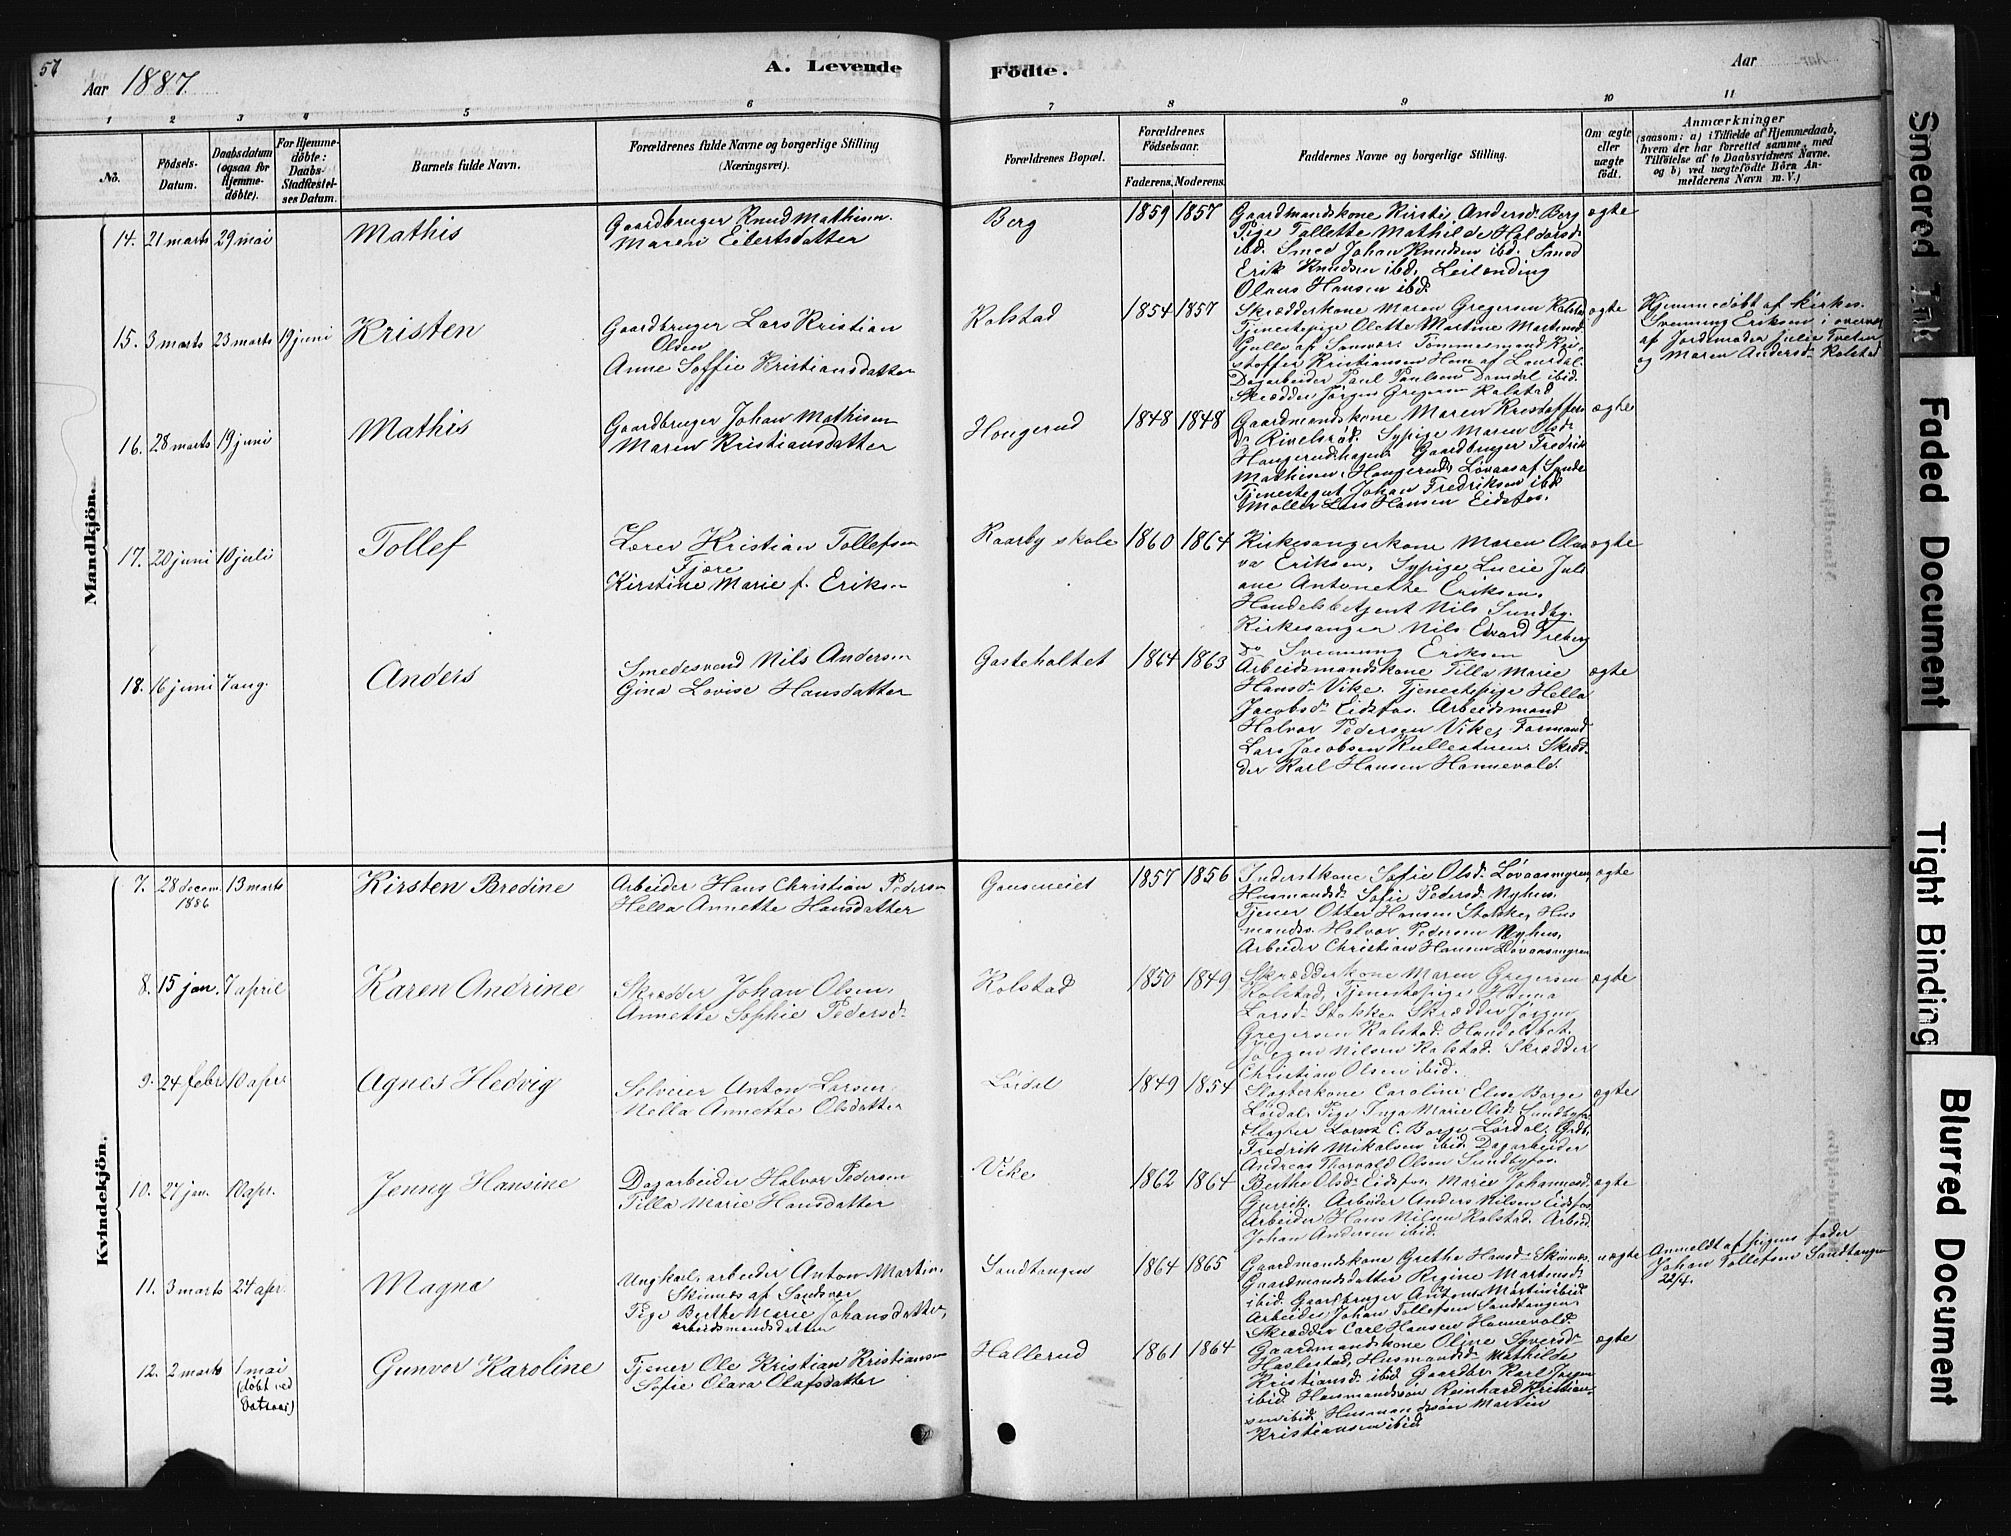 57
Aar 1887.
A. Levende
Födte.
Aar
1 2 3 4 5 6 7 8 9 10 11
No.
Födsels-
Datum.
Daabsdatum
(ogsaa for
Hjemme-
döbte).
For Hjemme-
döbte:
Daabs-
Stadfæstel-
ses Datum.
Barnets fulde Navn.
Forældrenes fulde Navne og borgerlige Stilling
(Næringsvei).
Forældrenes Bopæl.
Forældrenes
Födselsaar.
Faderens. Moderens.
Faddernes Navne og borgerlige Stilling.
Om ægte
eller
uægte
födt.
Anmærkninger
(saasom: a) i Tilfælde af Hjemmedaab,
hvem der har forrettet samme, med
Tilföielse af to Daabsvidners Navne,
og b) ved uægtefödte Börn An-
melderens Navn m. V.)
Mandkjön.
14. 21 marts 29 mai
Mathis
Gaardbruger Knud Mathisen.
Maren Eilertsdatter
Berg
1859 1857
Gaardmandskone Kirsti Andersd. Berg
Pige Tollette Mathilde Haldorsd.
ibd. Smed Johan Knudsen ibd. Smed
Erik Knudsen ibd. Leilending
Olaus Hansen ibd.
ægte
15. 3 marts 23 marts 19 juni
Kristen
Gaardbruger Lars Kristian
Olsen
Anne Soffie Kristiansdatter
Kolstad
1854 1857
Skrædderkone Maren Gregersen Kolstad
Tjenestepige Olette Martine Martinsd.
Gulla af Sandsvær Tömmermand Kri-
stoffer Kristiansen Hem af Laurdal.
Dagarbeider Paul Paulsen Damdal ibid.
Skrædder Jörgen Gregersen Kolstad
ægte
Hjemmedöbt af kirkes.
Svenning Eriksen i overvær
af Jordemoder Julie Tveten
og Maren Andersd. Kolstad
16. 28 marts 19 juni
Mathis
Gaardbruger Johan Mathisen
Maren Kristiansdatter
Hougerud
1848 1848
Gaardmandskone Maren Kristoffers
Dr Rivelsröd. Sypige Maren Olsd.
Hougerudhagen Gaardbruger Fredrik
Mathisen, Hougerud, Lövaas af Sande
Tjenestegut Johan Fredriksen ibd.
Möller Lars Hansen Eidsfos.
ægte
17. 20 juni 10 juli
Tollef
Lærer Kristian Tollefsen
Fjære
Kirstine Marie f. Eriksen
Kaarby skole
1860 1864
Kirkesangerkone Maren Olav
va Eriksen, Sypige Lucie Juli
ane Antonette Eriksen,
Handelsbetjent Nils Sundby.
Kirkesanger Nils Edvard Freberg
Do Svenning Eriksen
ægte
18. 16 juni 7 aug.
Anders
Smedesvend Nils Andersen
Gina Lovise Hansdatter
Gasteholtet
1864 1863
Arbeidsmandskone Tilla Marie
Hansd. Vike. Tjenestepige Hella
Jacobsd. Eidsfos. Arbeidsmand
Halvor Pedersen Vike, Formand
Lars Jacobsen Kullestuen Skræd-
der Karl Hansen Hannevold.
ægte
Kvindekjön.
7. 28 decem. 13 marts
1886
Kirsten Bredine
Arbeider Hans Christian Pedersen
Hella Annette Hansdatter
Gauseneiet
1857 1856
Inderstkone Sofie Olsd. Lövaasmyren,
Husmandsd. Sofie Pedersd. Nyhus,
Tjener Otter Hansen Stokke, Hus
mands. Halvor Pedersen Nyhus,
Arbeider Christian Hansen Lövaasmyren
ægte
8. 15 jan. 7 april
Karen Andrine
Skrædder Johan Olsen.
Annette Sophie Pedersd.
Kolstad
1850 1849
Skrædderkone Maren Gregersen
Kolstad, Tjenestepige Hanna
Larsd. Stokke Skrædder Jörgen
Gregersen Kolstad. Handelsbet.
Jörgen Nilsen Kolstad. Skrædder
Christian Olsen ibid.
ægte
9. 24 febr 10 apr.
Agnes Hedvig
Selveier Anton Larsen
Nella Annette Olsdatter
Lördal
1849 1854
Slagterkone Caroline Elise Borge
Lördal, Pige Inga Marie Olsd. Sundbyfos
Slagter Lorentz C. Borge Lördal, Grdbr.
Fredrik Mikalsen ibid. Dagarbeider
Andreas Thorvald Olsen Sundbyfos.
ægte
10. 27 jan. 10 apr.
Jenny Hansine
Dagarbeider Halvor Pedersen
Tilla Marie Hansdatter
Vike
1862 1864
Berthe Olsd. Eidsfos, Marie Johannesd.
Gjersik. Arbeider Anders Nilsen Eidsfos
Arbeider Hans Nilsen Kolstad. Arbeid.
Johan Andersen ibid.
ægte
11. 3 marts 24 apr.
Magna
Ungkarl, arbeider Anton Martin.
Skinnes af Sandsvær
Pige Berthe Marie Johansdatter,
arbeidsmandsdatter
Sandtangen
1864 1865
Gaardmandskone Grethe Hansd. Skinnes,
Gaardmandsdatter Regine Martinsd.
ibid. Gaardbruger Anton Martin ibid.
Arbeider Johan Tollefsen Sandtangen
Skrædder Carl Hansen Hannevold.
uægte
Anmeldt af pigens fader
Johan Tollefsen Sandtangen
22/4.
12. 2 marts 1 mai
(döbt ved
Vatsaas)
Gunvor Karoline
Tjener Ole Kristian Kristiansen
Sofie Olava Olafsdatter
Hallerud
1861 1864
Gaardmandskone Oline Syversd.
Haslestad, Husmandsd. Mathilde
Kristiansd. ibid. Gaardbr. Karl Jörgen
ibid. Husmandssön Reinhard Kristian-
sen ibid. Husmandssön Martin
Kristiansen ibid.
ægte
Smeared Ink
Faded Document
Tight Binding
Blurred Document